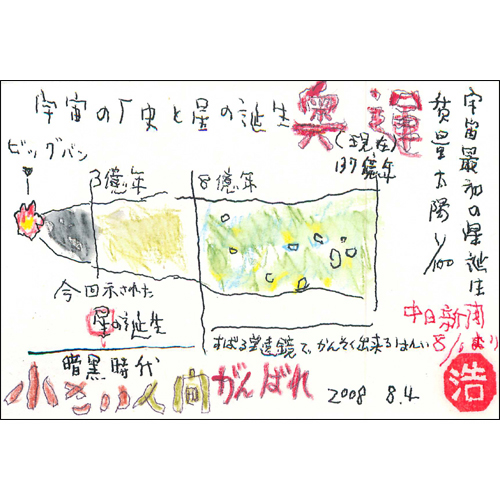 宇宙の厂史と星の誕生
奥運
宇宙最初の星誕生
質量太陽1/100
ビッグバン
3億年
8億年
(現在)
137億年
今回示された
星の誕生
暗黒時代
すばる望遠鏡で、かんそく出来るはんい
中日新聞
8/1より
小さい人間がんばれ
2008 8.4
浩